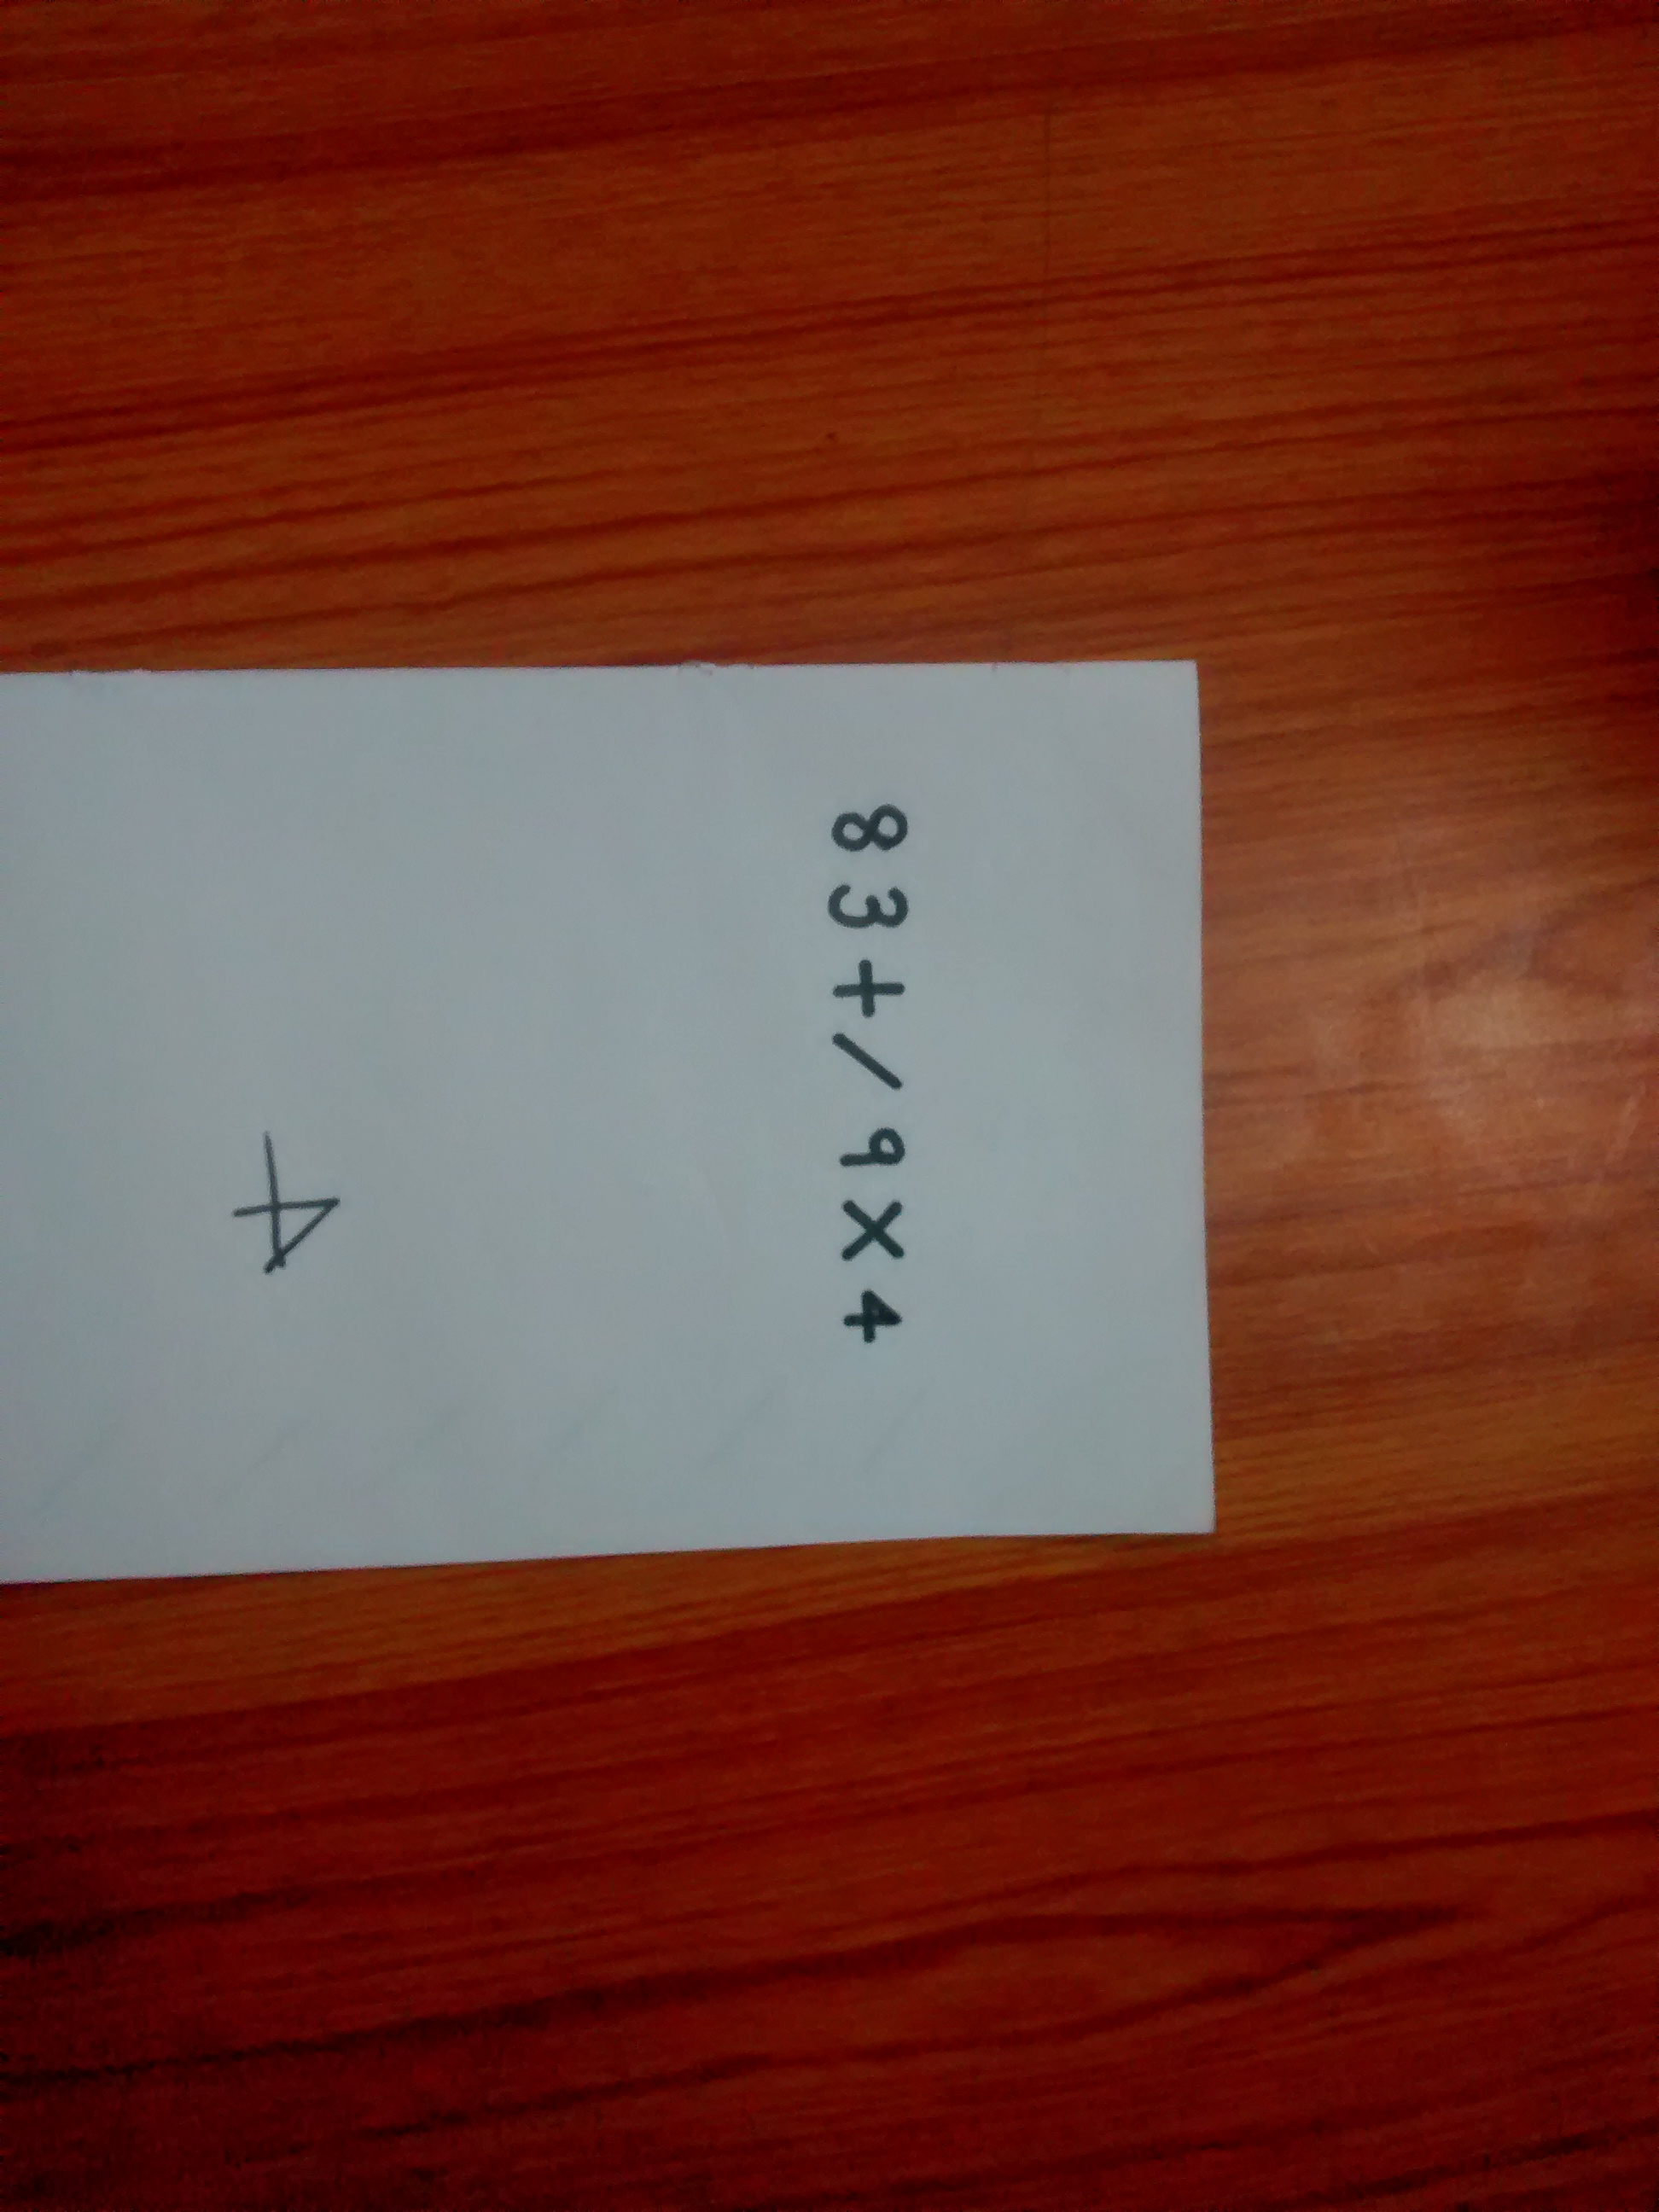 83+/9×4
4